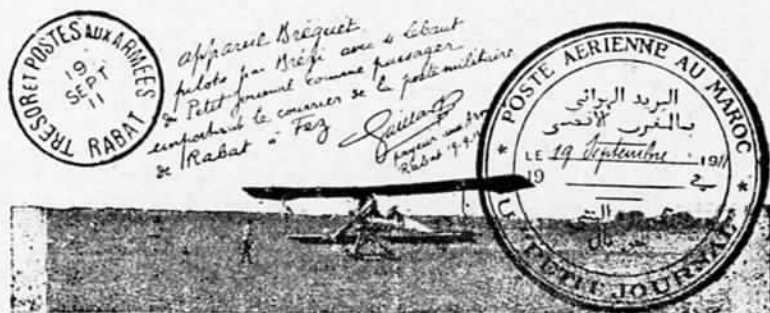 TRESOR ET POSTES AUX ARMÉES
19
SEPT
11
RABAT
appareil Bréguet
piloté par Brégi avec M Lebaut
du Petit Journal comme passager
emportant le courrier de la poste militaire
de Rabat à Fez
Gaillard
payeur aux
Rabat 19.9.11
* POSTE AERIENNE AU MAROC *
البريد الهوائي
بالمغرب الأقصى
LE 19 Septembre 1911
19
في
DU PETIT JOURNAL